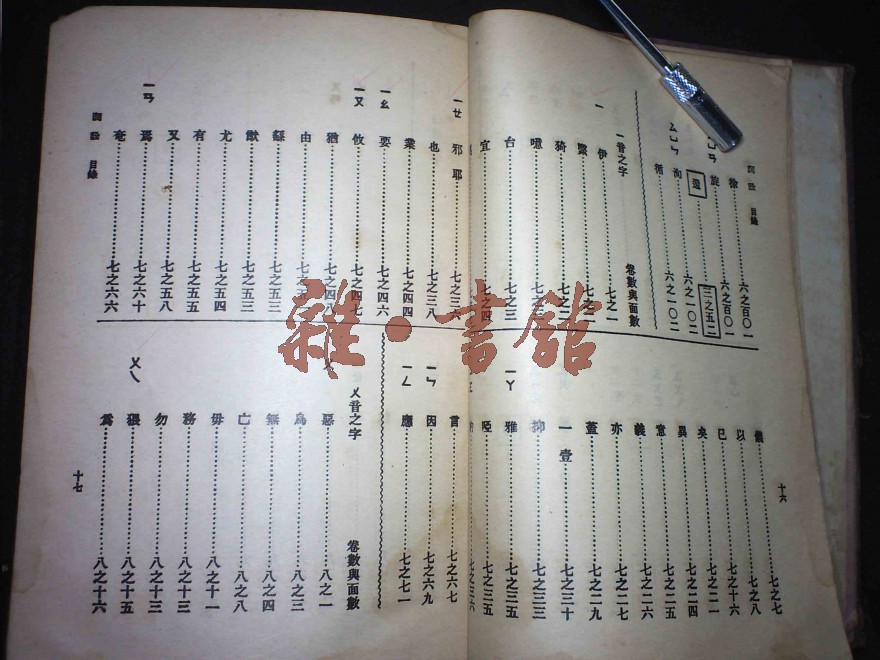 詞詮 目錄
徐 六之百〇一
ㄩㄢ 旋 六之百〇一
還 三之五二
ㄙㄩㄣ 洵 六之一〇二
循 六之一〇二
一音之字 卷數與面數
一 伊 七之一
繄 七之二
猗 七之二
噫
台 七之三
宜 七之四
儀 七之七
以 七之八
已 七之十六
矣 七之二一
異 七之二四
意 七之二五
義 七之二六
亦 七之二七
蓋 七之二九
一壹 七之三十
抑 七之三三
一ㄚ 雅 七之三五
啞 七之三五
七之三六
十六
一ㄝ 邪耶 七之三六
也 七之三八
業 七之四四
一ㄠ 要 七之四六
一ㄡ 攸 七之四七
猶 七之四八
由
繇 七之五三
猷 七之五三
尤 七之五四
有 七之五五
又 七之五八
一ㄢ 焉 七之六十
奄 七之六六
詞詮 目錄
言 七之六七
一ㄣ 因 七之六九
一ㄥ 應 七之七一
ㄨ音之字 卷數與面數
惡 八之一
烏 八之三
無 八之四
亡 八之八
毋 八之十一
務 八之十三
勿 八之十三
ㄨㄟ 猥 八之十五
爲 八之十六
十七
雜·書館